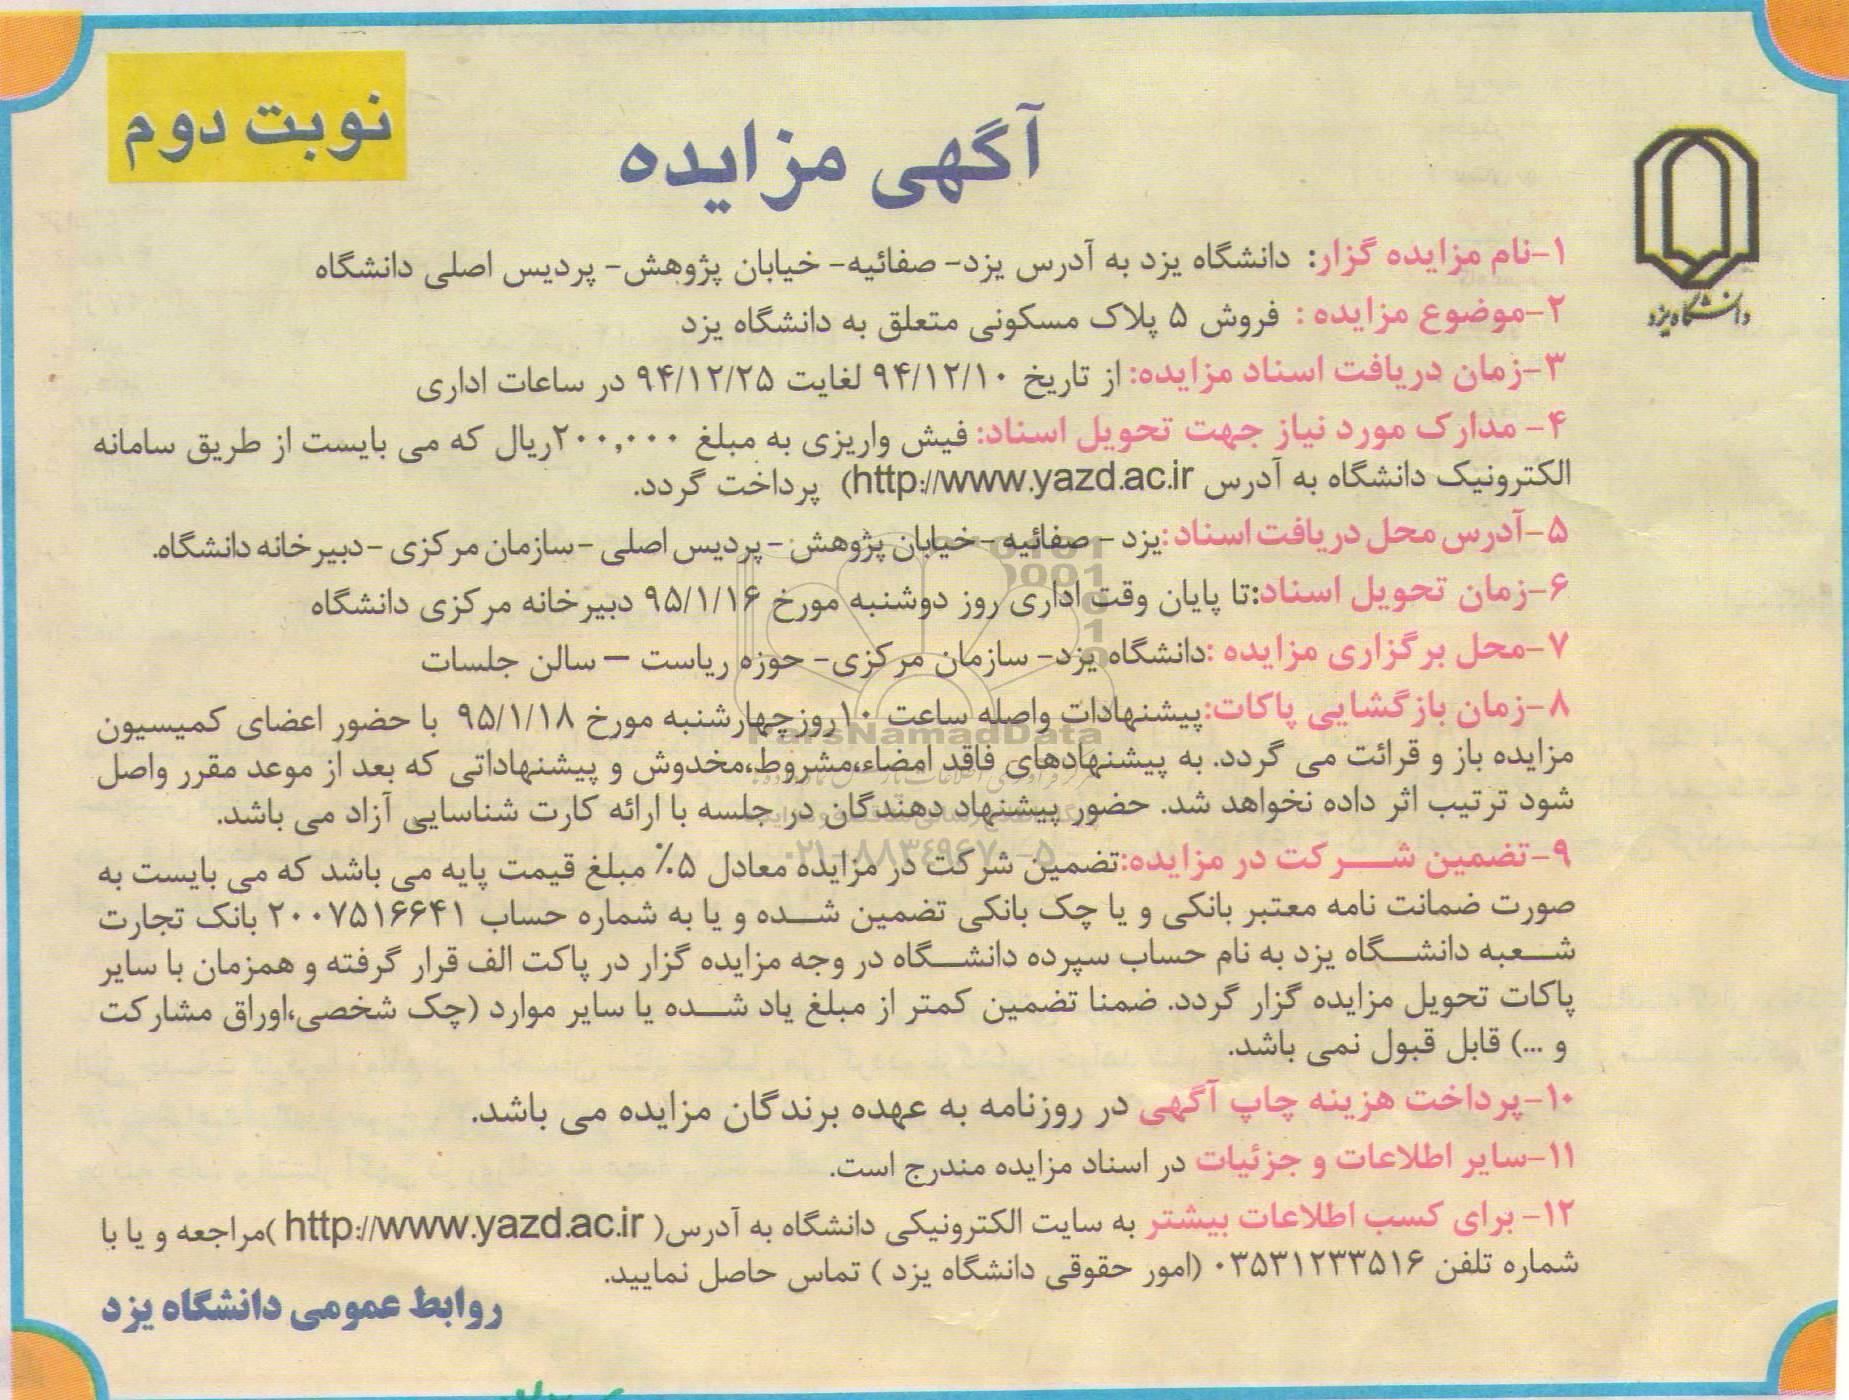 نوبت دوم
آگهی مزایده
دانشگاه یزد
۱-نام مزایده گزار: دانشگاه یزد به آدرس یزد- صفائیه- خیابان پژوهش- پردیس اصلی دانشگاه
۲-موضوع مزایده : فروش ۵ پلاک مسکونی متعلق به دانشگاه یزد
۳-زمان دریافت اسناد مزایده: از تاریخ ۹۴/۱۲/۱۰ لغایت ۹۴/۱۲/۲۵ در ساعات اداری
۴- مدارک مورد نیاز جهت تحویل اسناد: فیش واریزی به مبلغ ۲۰۰,۰۰۰ریال که می بایست از طریق سامانه
الکترونیک دانشگاه به آدرس http://www.yazd.ac.ir) پرداخت گردد.
۵-آدرس محل دریافت اسناد :یزد - صفائیه -خیابان پژوهش - پردیس اصلی -سازمان مرکزی -دبیرخانه دانشگاه.
۶-زمان تحویل اسناد:تا پایان وقت اداری روز دوشنبه مورخ ۹۵/۱/۱۶ دبیرخانه مرکزی دانشگاه
۷-محل برگزاری مزایده :دانشگاه یزد- سازمان مرکزی- حوزه ریاست – سالن جلسات
۸-زمان بازگشایی پاکات:پیشنهادات واصله ساعت ۱۰روزچهارشنبه مورخ ۹۵/۱/۱۸ با حضور اعضای کمیسیون
مزایده باز و قرائت می گردد. به پیشنهادهای فاقد امضاء،مشروط،مخدوش و پیشنهاداتی که بعد از موعد مقرر واصل
شود ترتیب اثر داده نخواهد شد. حضور پیشنهاد دهندگان در جلسه با ارائه کارت شناسایی آزاد می باشد.
۹-تضمین شرکت در مزایده:تضمین شرکت در مزایده معادل ۵٪ مبلغ قیمت پایه می باشد که می بایست به
صورت ضمانت نامه معتبر بانکی و یا چک بانکی تضمین شده و یا به شماره حساب ۲۰۰۷۵۱۶۶۴۱ بانک تجارت
شعبه دانشگاه یزد به نام حساب سپرده دانشگاه در وجه مزایده گزار در پاکت الف قرار گرفته و همزمان با سایر
پاکات تحویل مزایده گزار گردد. ضمنا تضمین کمتر از مبلغ یاد شده یا سایر موارد (چک شخصی،اوراق مشارکت
و ...) قابل قبول نمی باشد.
۱۰-پرداخت هزینه چاپ آگهی در روزنامه به عهده برندگان مزایده می باشد.
۱۱-سایر اطلاعات و جزئیات در اسناد مزایده مندرج است.
۱۲- برای کسب اطلاعات بیشتر به سایت الکترونیکی دانشگاه به آدرس( http://www.yazd.ac.ir )مراجعه و یا با
شماره تلفن ۰۳۵۳۱۲۳۳۵۱۶ (امور حقوقی دانشگاه یزد ) تماس حاصل نمایید.
روابط عمومی دانشگاه یزد
ParsNamadData
۰۲۱-۸۸۳۴۹۶۷۰-۵